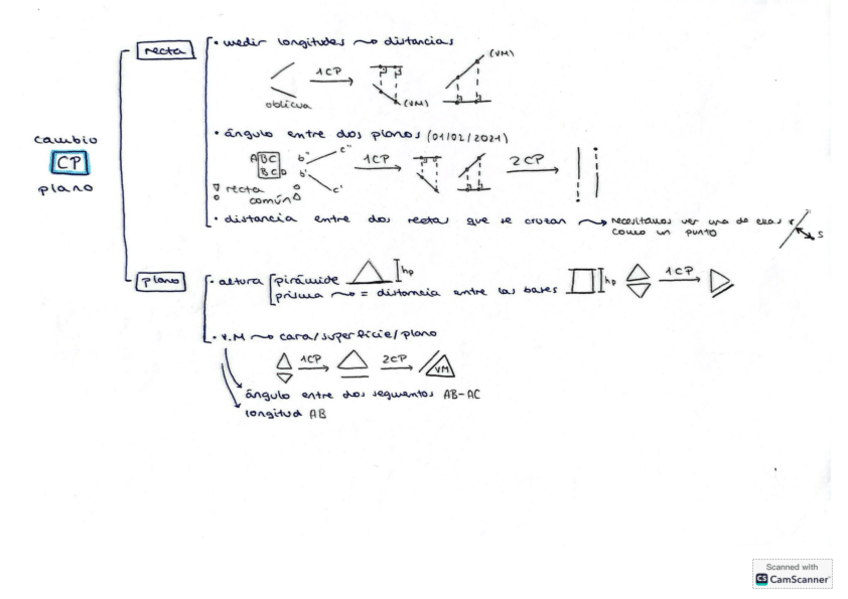 cambio
CP
plano
recta
• medir longitudes ~> distancias
oblicua
1CP
(VM)
(VM)
• ángulo entre dos planos (01/02/2021)
ABC
BCD
recta
común
b'' c''
b' c'
1CP
2CP
• distancia entre dos rectas que se cruzan ~> necesitamos ver una de esas r
como un punto
r
s
plano
• altura pirámide hp
prisma ~> = distancia entre las bases hp 1CP
• V.M ~> cara/superficie/plano
1CP 2CP VM
ángulo entre dos segmentos AB-AC
longitud AB
Scanned with
CS CamScanner